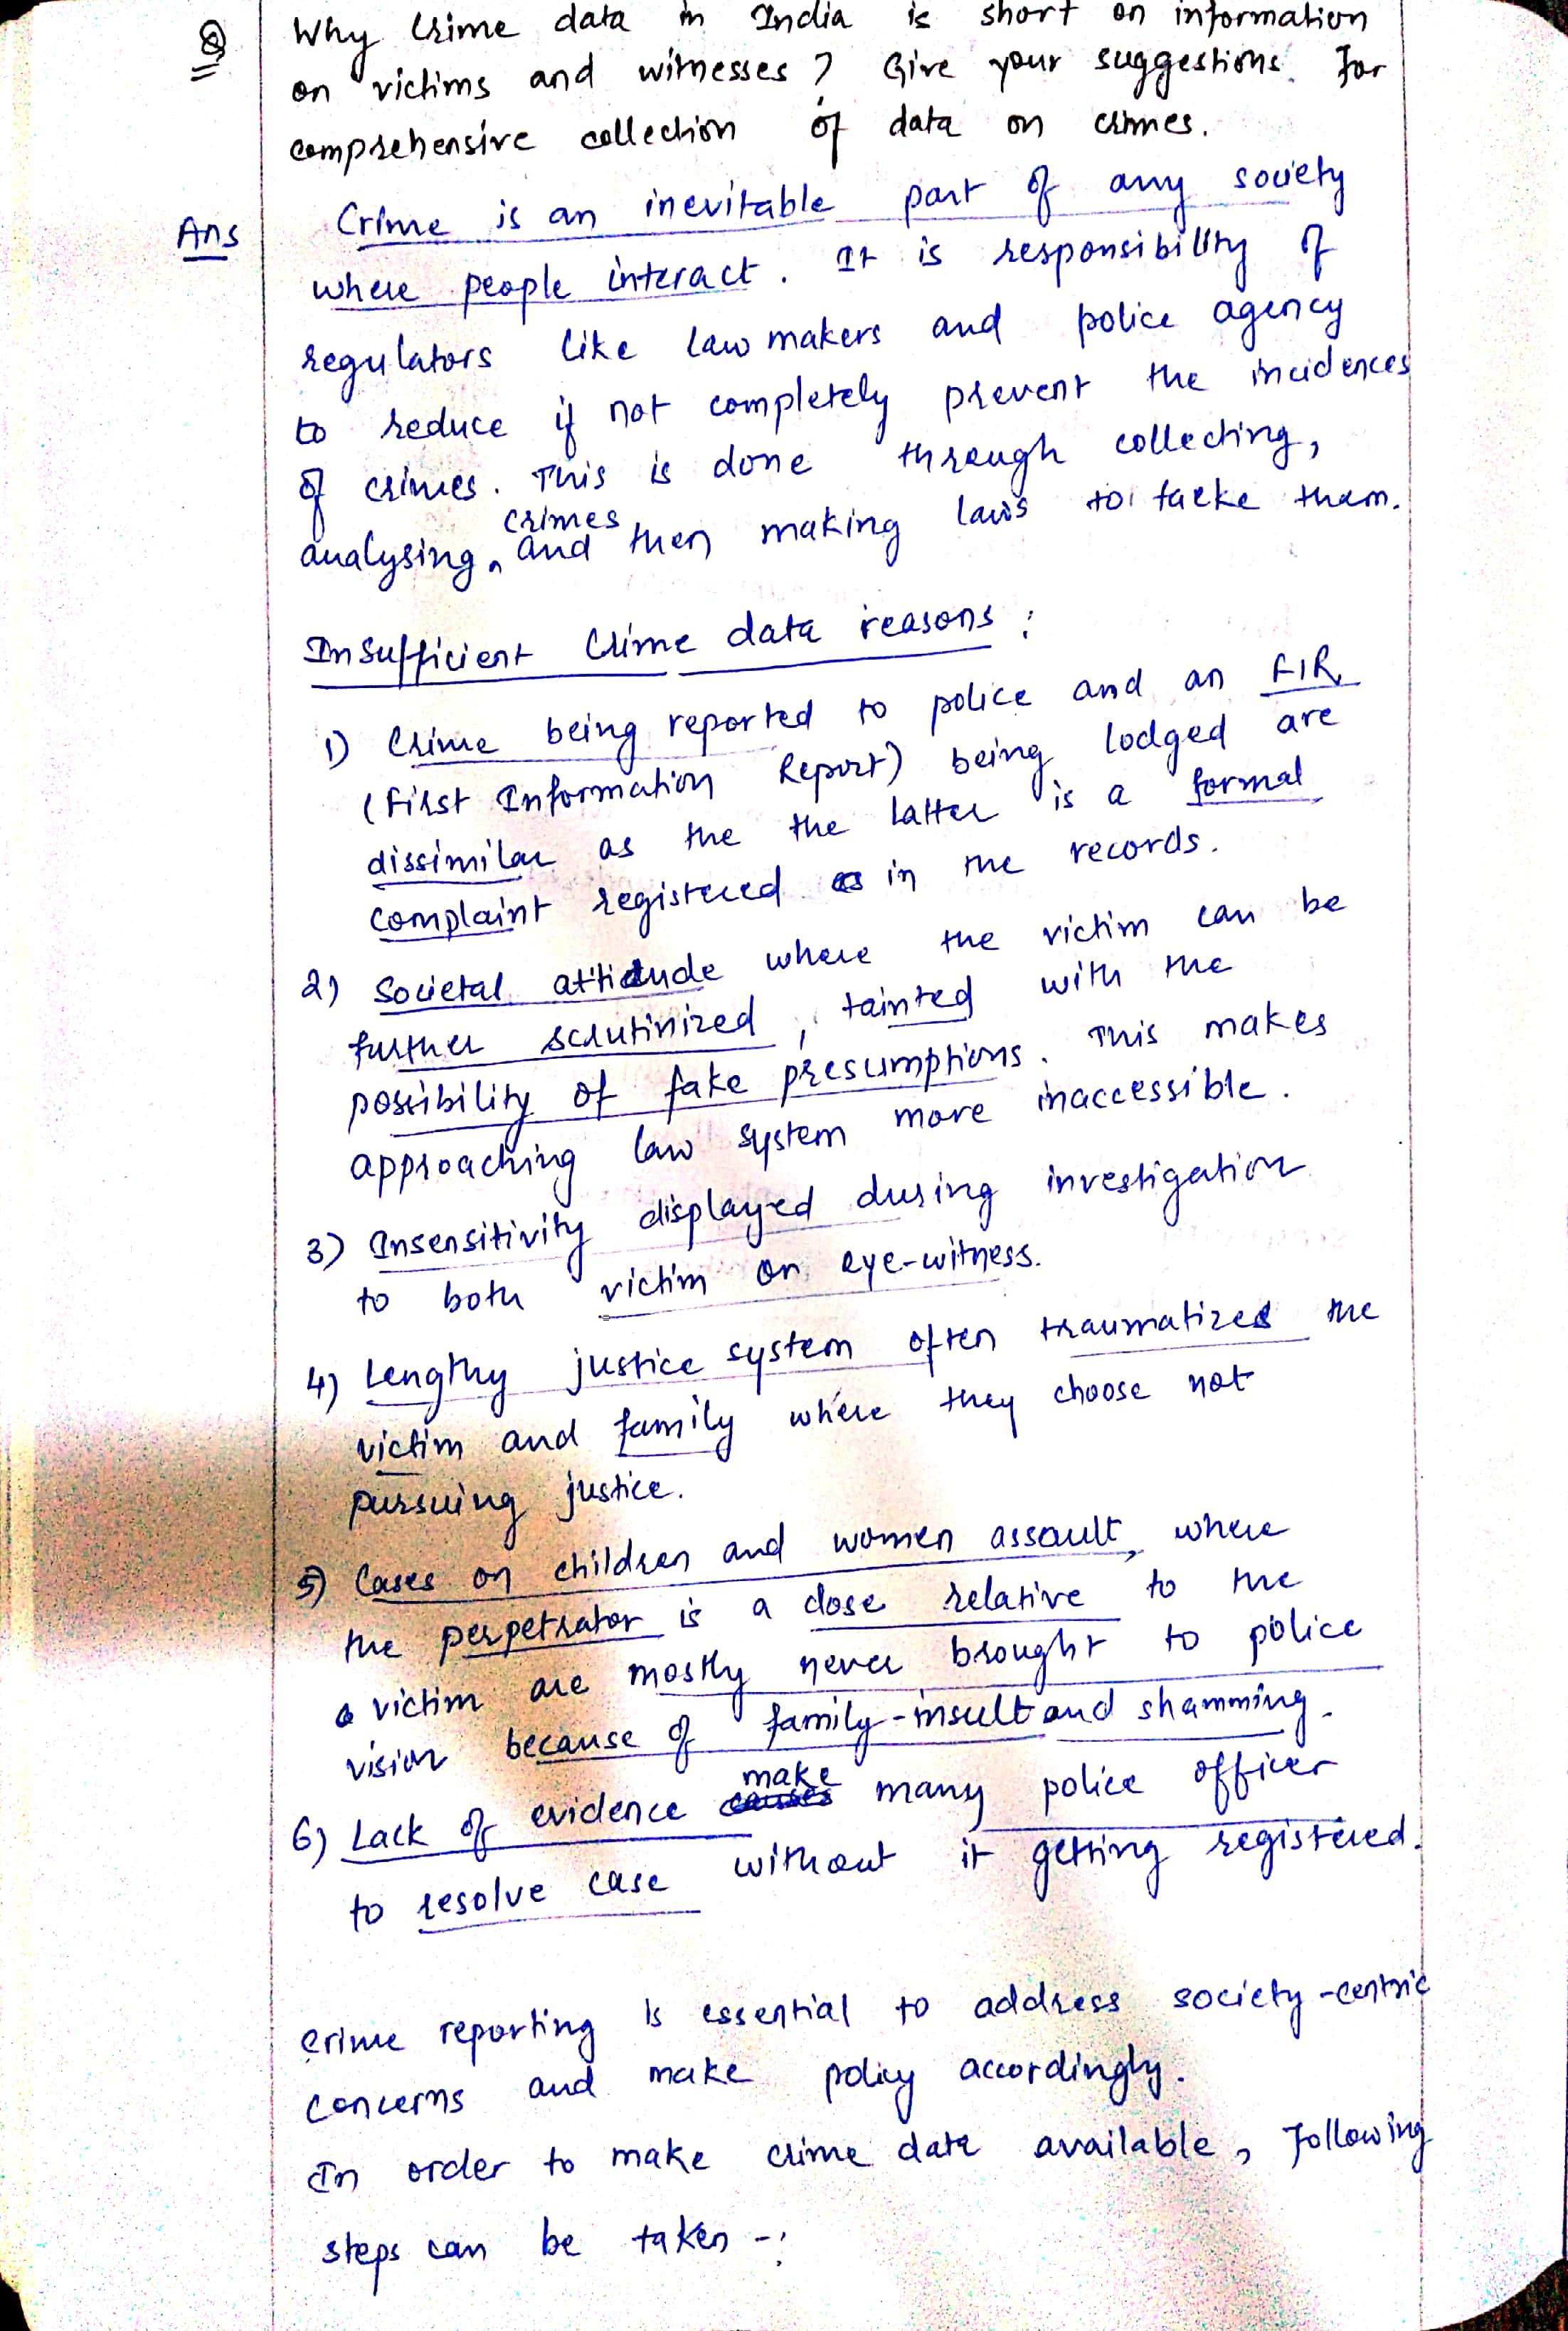 Q Why Crime data in India is short on information
on victims and witnesses? Give your suggestions for
comprehensive collection of data on crimes.
Ans Crime is an inevitable part of any society
where people interact. It is responsibility of
regulators like law makers and police agency
to reduce if not completely prevent the incidences
of crimes. This is done through collecting,
analysing crimes and then making laws to tacke them.
Insufficient Crime data reasons :
1) Crime being reported to police and an FIR
(First Information Report) being lodged are
dissimilar as the the latter is a formal
complaint registered in the records.
2) Societal attidude where the victim can be
further scrutinized, tainted with the
possibility of fake presumptions. This makes
approaching law system more inaccessible.
3) Insensitivity displayed during investigation
to both victim or eye-witness.
4) Lengthy justice system often traumatizes the
victim and family where they choose not
pursuing justice.
5) Cases on children and women assault, where
the perpetrator is a close relative to the
victim are mostly never brought to police
vision because of family-insult and shamming.
6) Lack of evidence causes make many police officer
to resolve case without it getting registered.
crime reporting is essential to address society-centric
concerns and make policy accordingly.
In order to make crime data available, following
steps can be taken -: